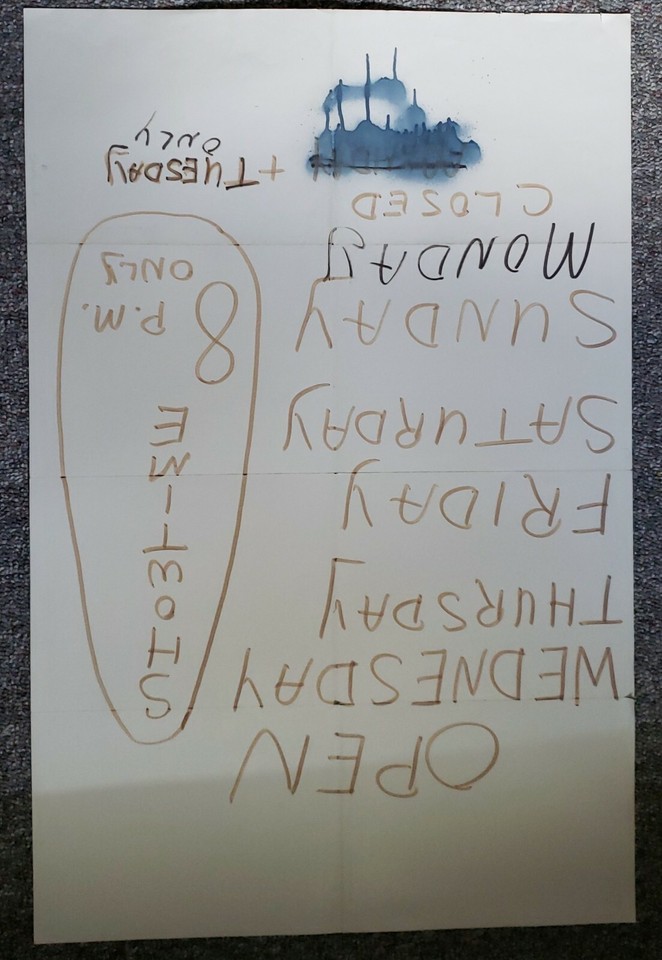 OPEN
WEDNESDAY
THURSDAY
FRIDAY
SATURDAY
SUNDAY
MONDAY
CLOSED
+ TUESDAY
ONLY
SHOWTIME
8 P.M.
ONLY